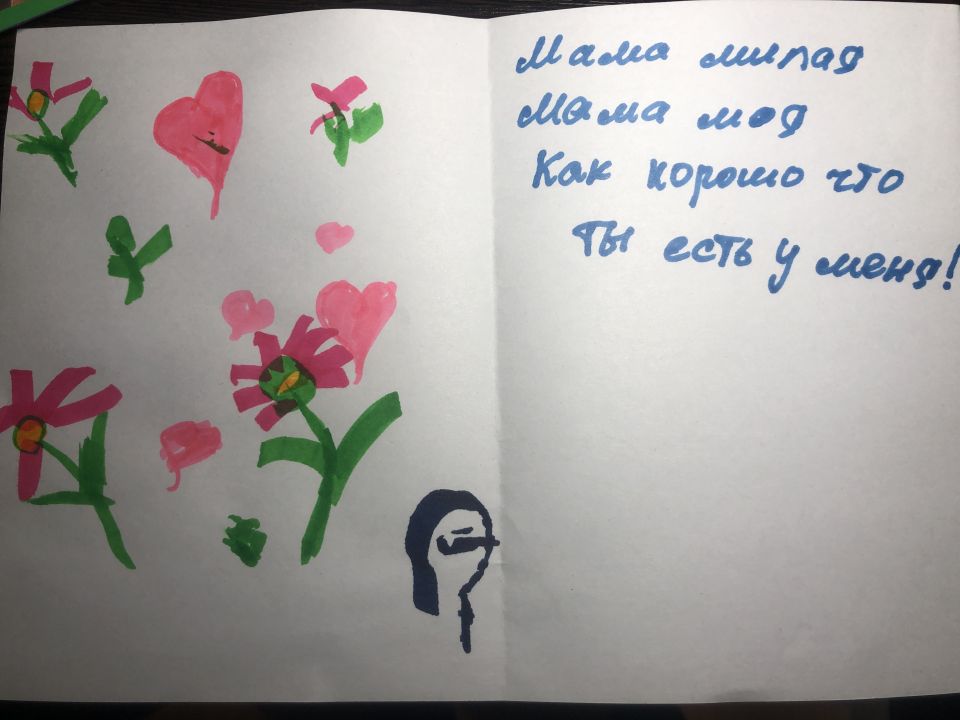 Мама милая
Мама моя
Как хорошо что
ты есть у меня!